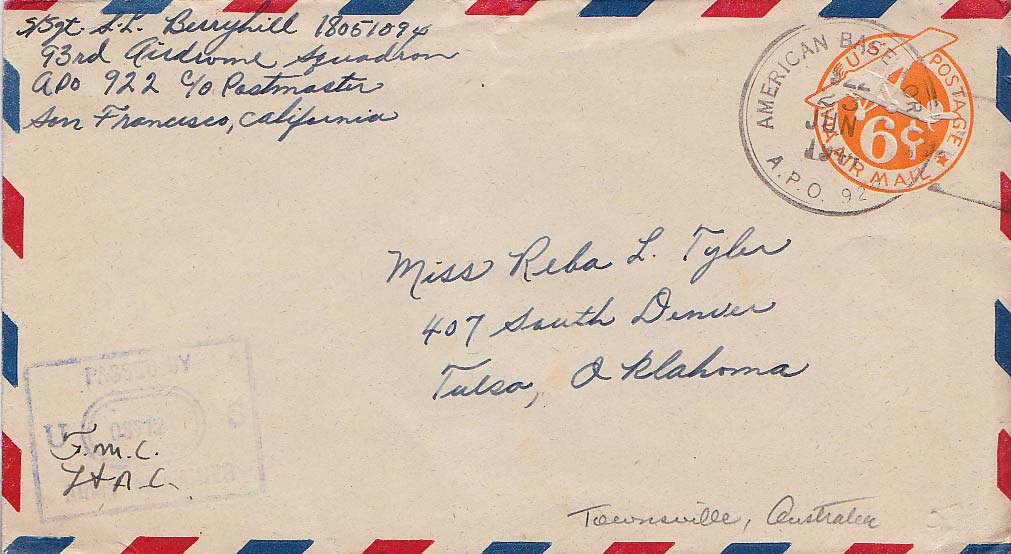 S/Sgt. S.L. Berryhill 18051094
93rd Airdrome Squadron
APO 922 c/o Postmaster
San Francisco, California
AMERICAN BASE FOR
JUN
A.P.O. 92
U.S. POSTAGE
6¢
AIR MAIL
Miss Reba L. Tyler
407 South Denver
Tulsa, Oklahoma
PASSED BY
U S
ARMY EXAMINER
Townsville, Australia